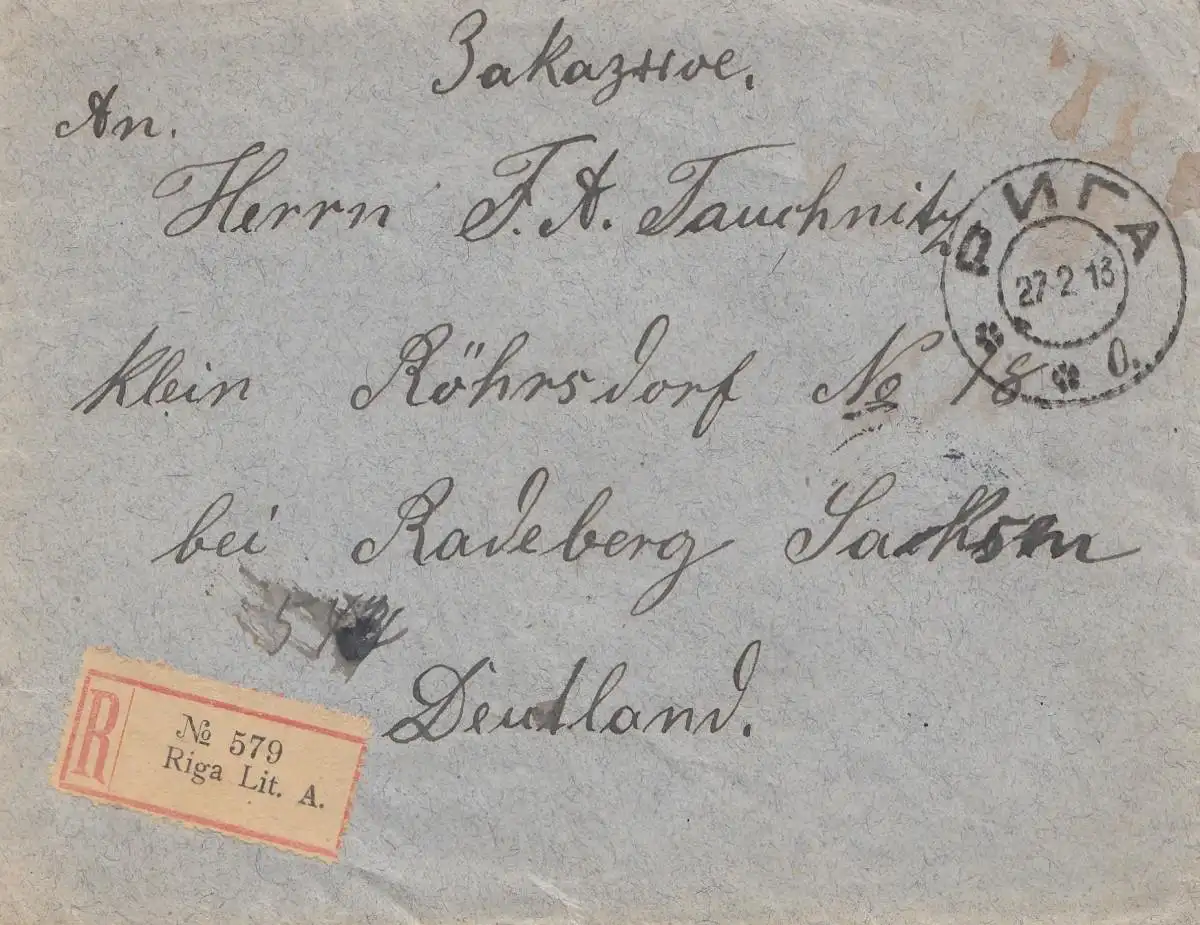 Заказное.
An.
Herrn F. A. Tauchnitz
РИГА
27·2 13
О.
Klein Röhrsdorf № 78
bei Radeberg Sachsen
Deutland.
R
№ 579
Riga Lit. A.